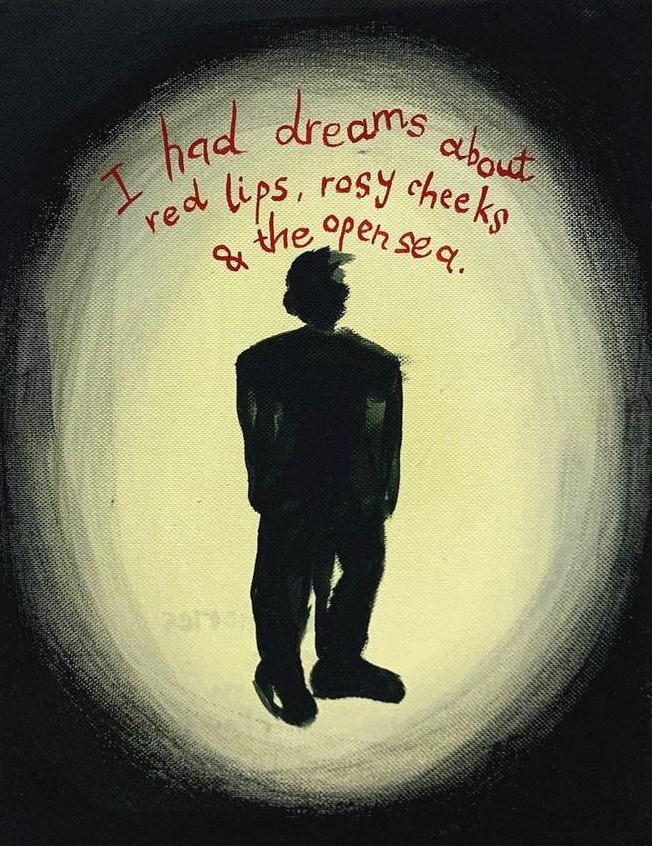 I had dreams about
red lips, rosy cheeks
& the open sea.